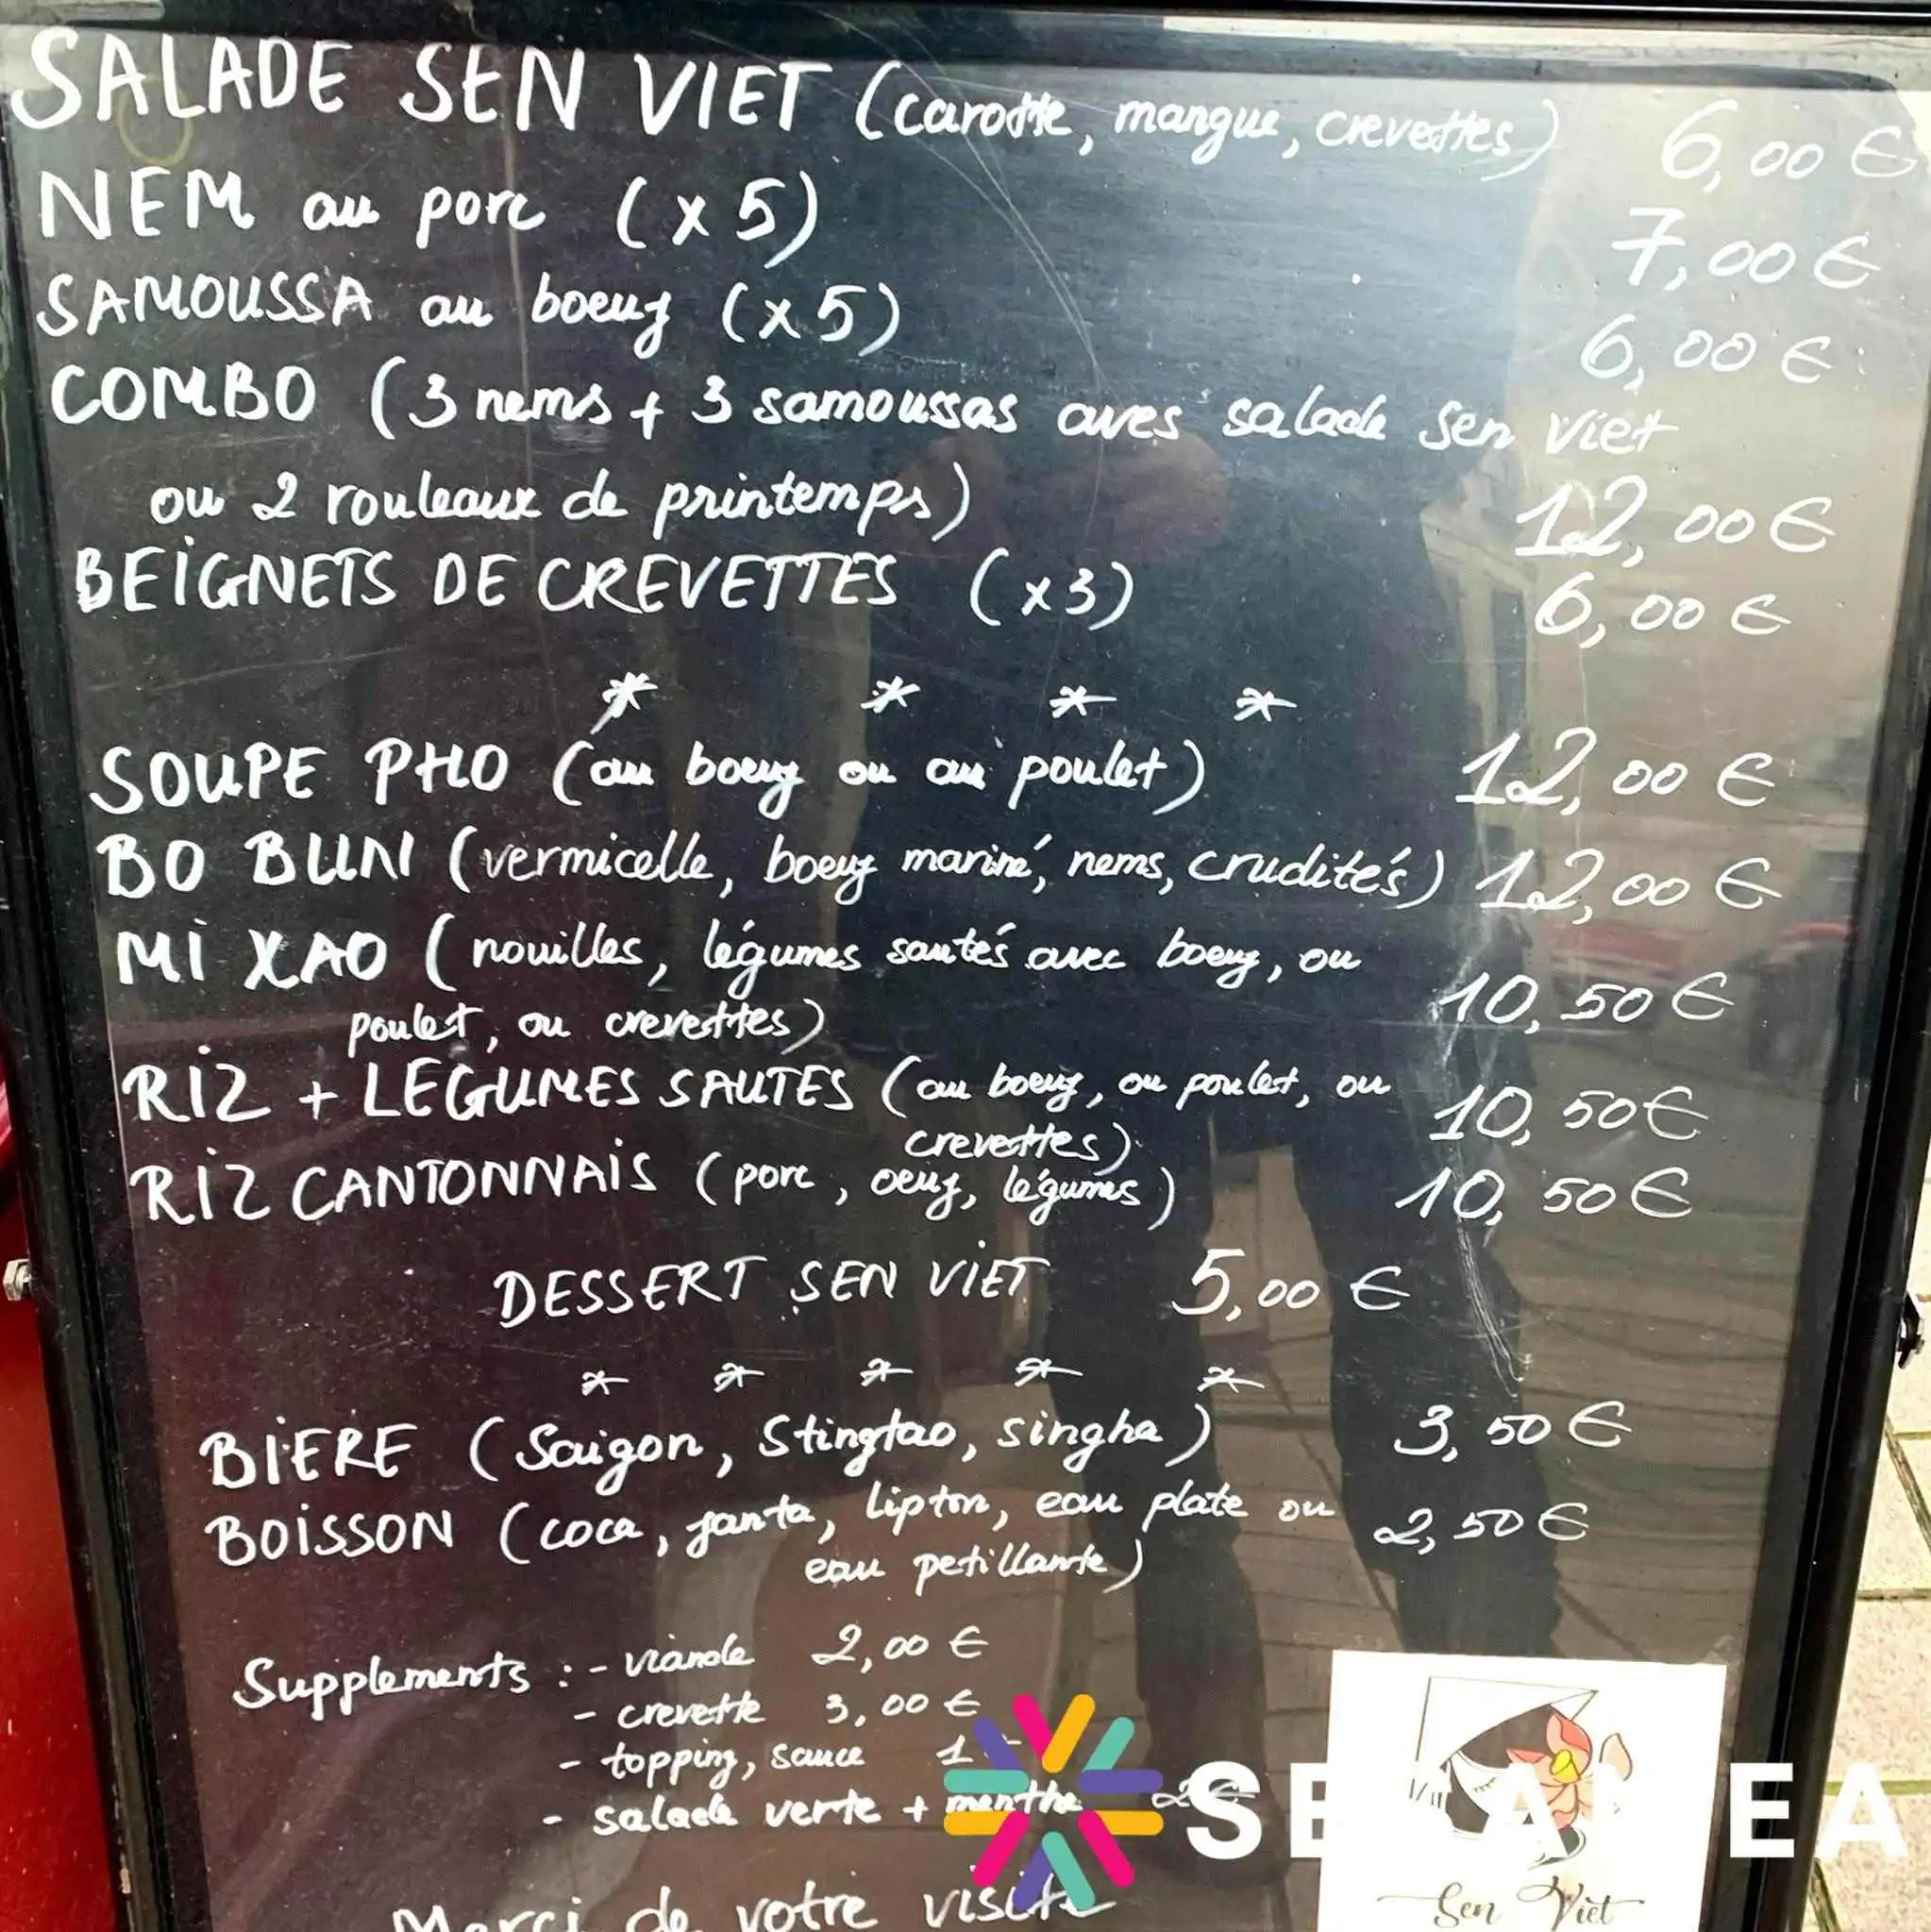 SALADE SEN VIET (carotte, mangue, crevettes) 6,00 €
NEM au porc (x5) 7,00 €
SAMOUSSA au boeuf (x5) 6,00 €
COMBO (3 nems + 3 samoussas aves salade Sen Viet
ou 2 rouleaux de printemps) 12,00 €
BEIGNETS DE CREVETTES (x3) 6,00 €
* * * *
SOUPE PHO (au boeuf ou au poulet) 12,00 €
BO BUN (vermicelle, boeuf mariné, nems, crudités) 12,00 €
Mi XAO (nouilles, légumes sautés avec boeuf, ou
poulet, ou crevettes) 10,50 €
RIZ + LEGUMES SAUTES (au boeuf, ou poulet, ou 10,50 €
crevettes)
RIZ CANTONNAIS (porc, oeuf, légumes) 10,50 €
DESSERT SEN VIET 5,00 €
* * * * *
BIERE (Saigon, Stingtao, singha) 3,50 €
BOISSON (coca, fanta, lipton, eau plate ou 2,50 €
eau petillante)
Supplements : - viande 2,00 €
- crevette 3,00 €
- topping, sauce 1
- salade verte + menthe 2€
Merci de votre visite
Sen Viet